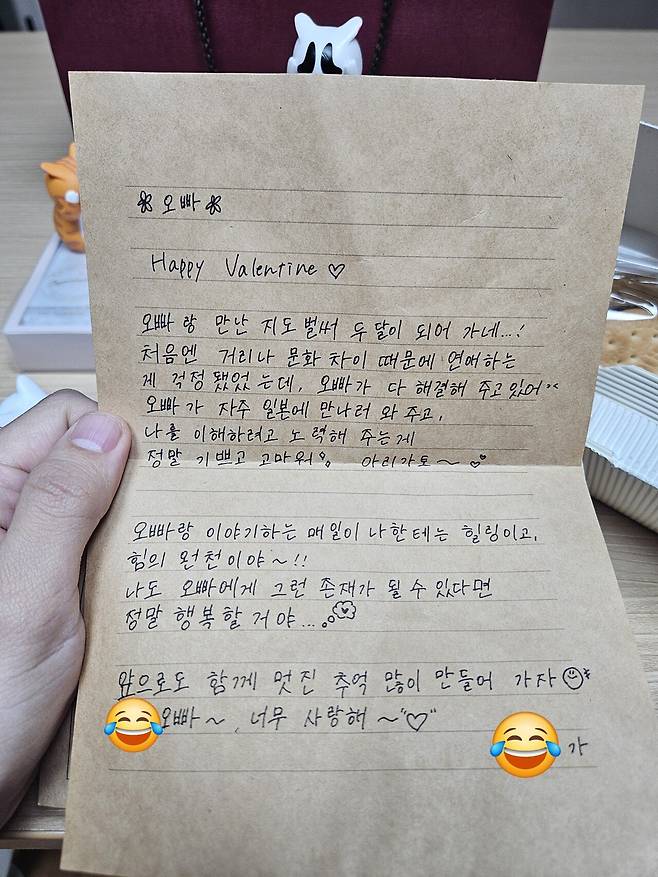 오빠
Happy Valentine ♡
오빠랑 만난 지도 벌써 두 달이 되어 가네...!
처음엔 거리나 문화 차이 때문에 연애하는
게 걱정 됐었는데, 오빠가 다 해결해 주고 있어
오빠가 자주 일본에 만나러 와 주고,
나를 이해하려고 노력해 주는게
정말 기쁘고 고마워 아리가토~
오빠랑 이야기하는 매일이 나한테는 힐링이고,
힘의 원천이야~!!
나도 오빠에게 그런 존재가 될 수 있다면
정말 행복할 거야...
앞으로도 함께 멋진 추억 많이 만들어 가자
오빠~, 너무 사랑해~"♡"
가